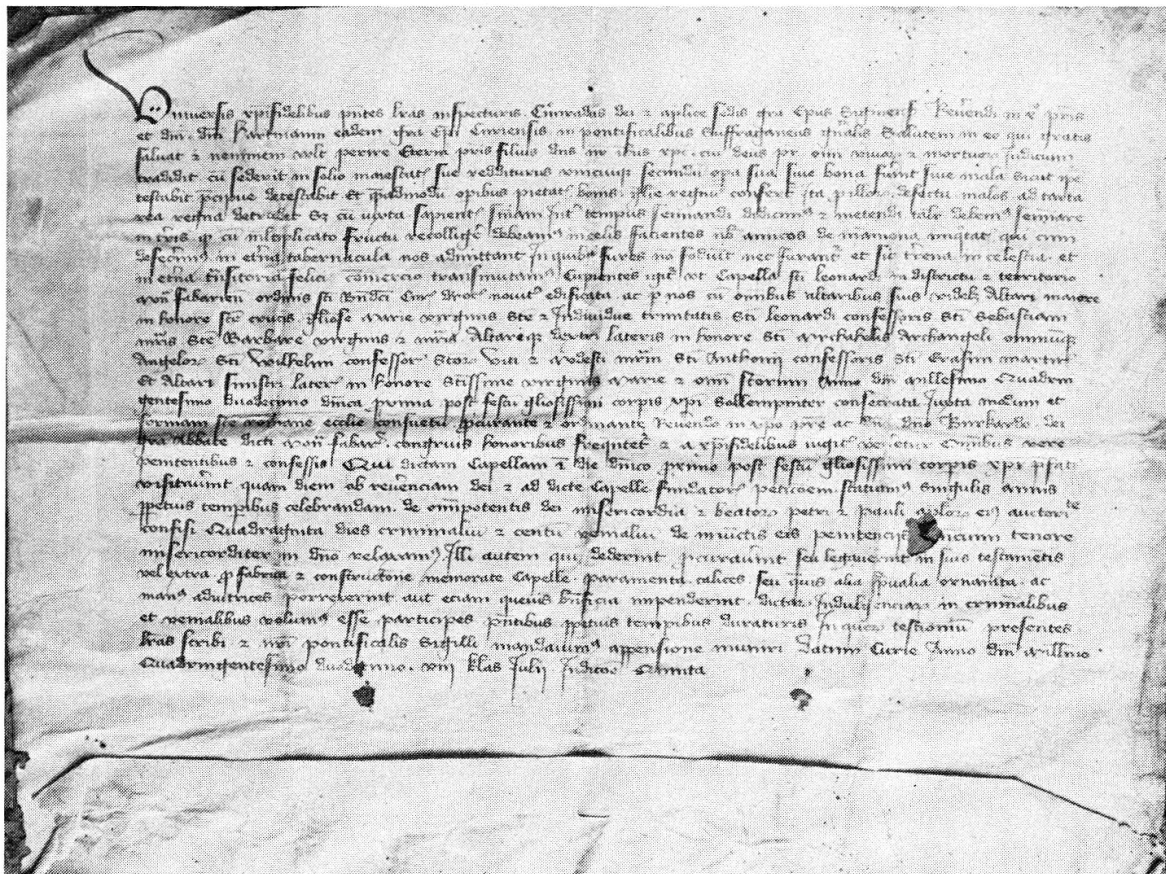 Universis xpifidelibus pntes lras inspecturis. Cunradus dei et aplice sedis gra Epus Reverendi in xo pris
et dni dni Hartmanni eadem gra Epi Curiensis in pontificalibus Suffraganeus gnalis Salutem in eo qui gratis
salvat et neminem vult perire Eterni pris filius dns nr ihus xpc. cui deus pr oim vivor et mortuor Judicium
tradidit cu sederit in solio maiestat sue redditurus unicuiq secundu opa sua sive bona fuerint sive mala sicut ipe
testabit detestabit Et opibus pietat bonis glie regnu conferet ita pillor defectu malos ad tarta
rea regna detrudet Sz cu iuxta sapient tempus seminandi didicim et metendi talr debem seminare
in tris qd cu mltiplicato fructu recollige debeam in celis facientes nb amicos de mamona iniqtat qui cum
defecim in eterna tabernacula nos admittant In quib fures no fodiut nec furantr et sic trena in celestia et
in etna tnsitoria felici comercio transmutam Cupientes igit ut Capella sti leonardi In districtu et territorio
mon fabarien ordinis sti Bndci Cur dyoc novit edificata ac p nos cu omnibus altaribus suis videlz Altari maiore
in honore ste crucis gliose marie virginis ste et Individue trinitatis sti leonardi confessoris sti Sebastiani
mris ste Barbare virginis et mris Altariq dextri lateris in honore sti michahelis Archangeli omniuq
Angelor sti Wilhelmi confessor stor Viti et modesti mrm sti Anthonii confessoris sti Erasmi martiris
Et Altari sinistri later in honore stissime virginis marie et oim storum Anno dni millesimo Quadrin
gentesimo duodecimo dnica prima post festu gliosissimi corpis xpi sollempniter consecrata Iuxta modum et
formam ste romane ecclie consuetu pcurante et ordinante Revendo in xpo pre ac dno dno Burkardo dei
gra Abbate dicti mon fabar. congruis honoribus freqntet et a xpifidelibus iugit veneretur Omnibus vere
penitentibus et confessis Qui dictam Capellam i die dnico primo post festu gliosissimi corpis xpi pfati
visitaverint quam diem ob reverenciam dei et ad dicte Capelle fundator peticoem statuim singulis annis
ppetuis tempibus celebrandam de omipotentis dei misericordia et beator petri et pauli aplor eius auctorite
confisi Quadraginta dies criminaliu et centu venialiu de iniuctis eis penitencijs tenore
misericorditer in dno relaxam. Illi autem qui dederint pcuraverint seu legaverint in suis testametis
vel extra p fabrica et constructione memorate Capelle paramenta calices seu quevis alia spualia ornamta ac
man adiutrices porrexerint aut eciam quevis bnficia impenderint dictar Indulgenciar in criminalibus
et venialibus volum esse participes pntibus ppetuis tempibus duraturis In quor testioniu presentes
lras scribi et nri pontificalis Sigilli mandavim appensione muniri Datum Curie Anno dni millimo
Quadringentesimo duodecimo. viij klas Julii Indicoe Quinta